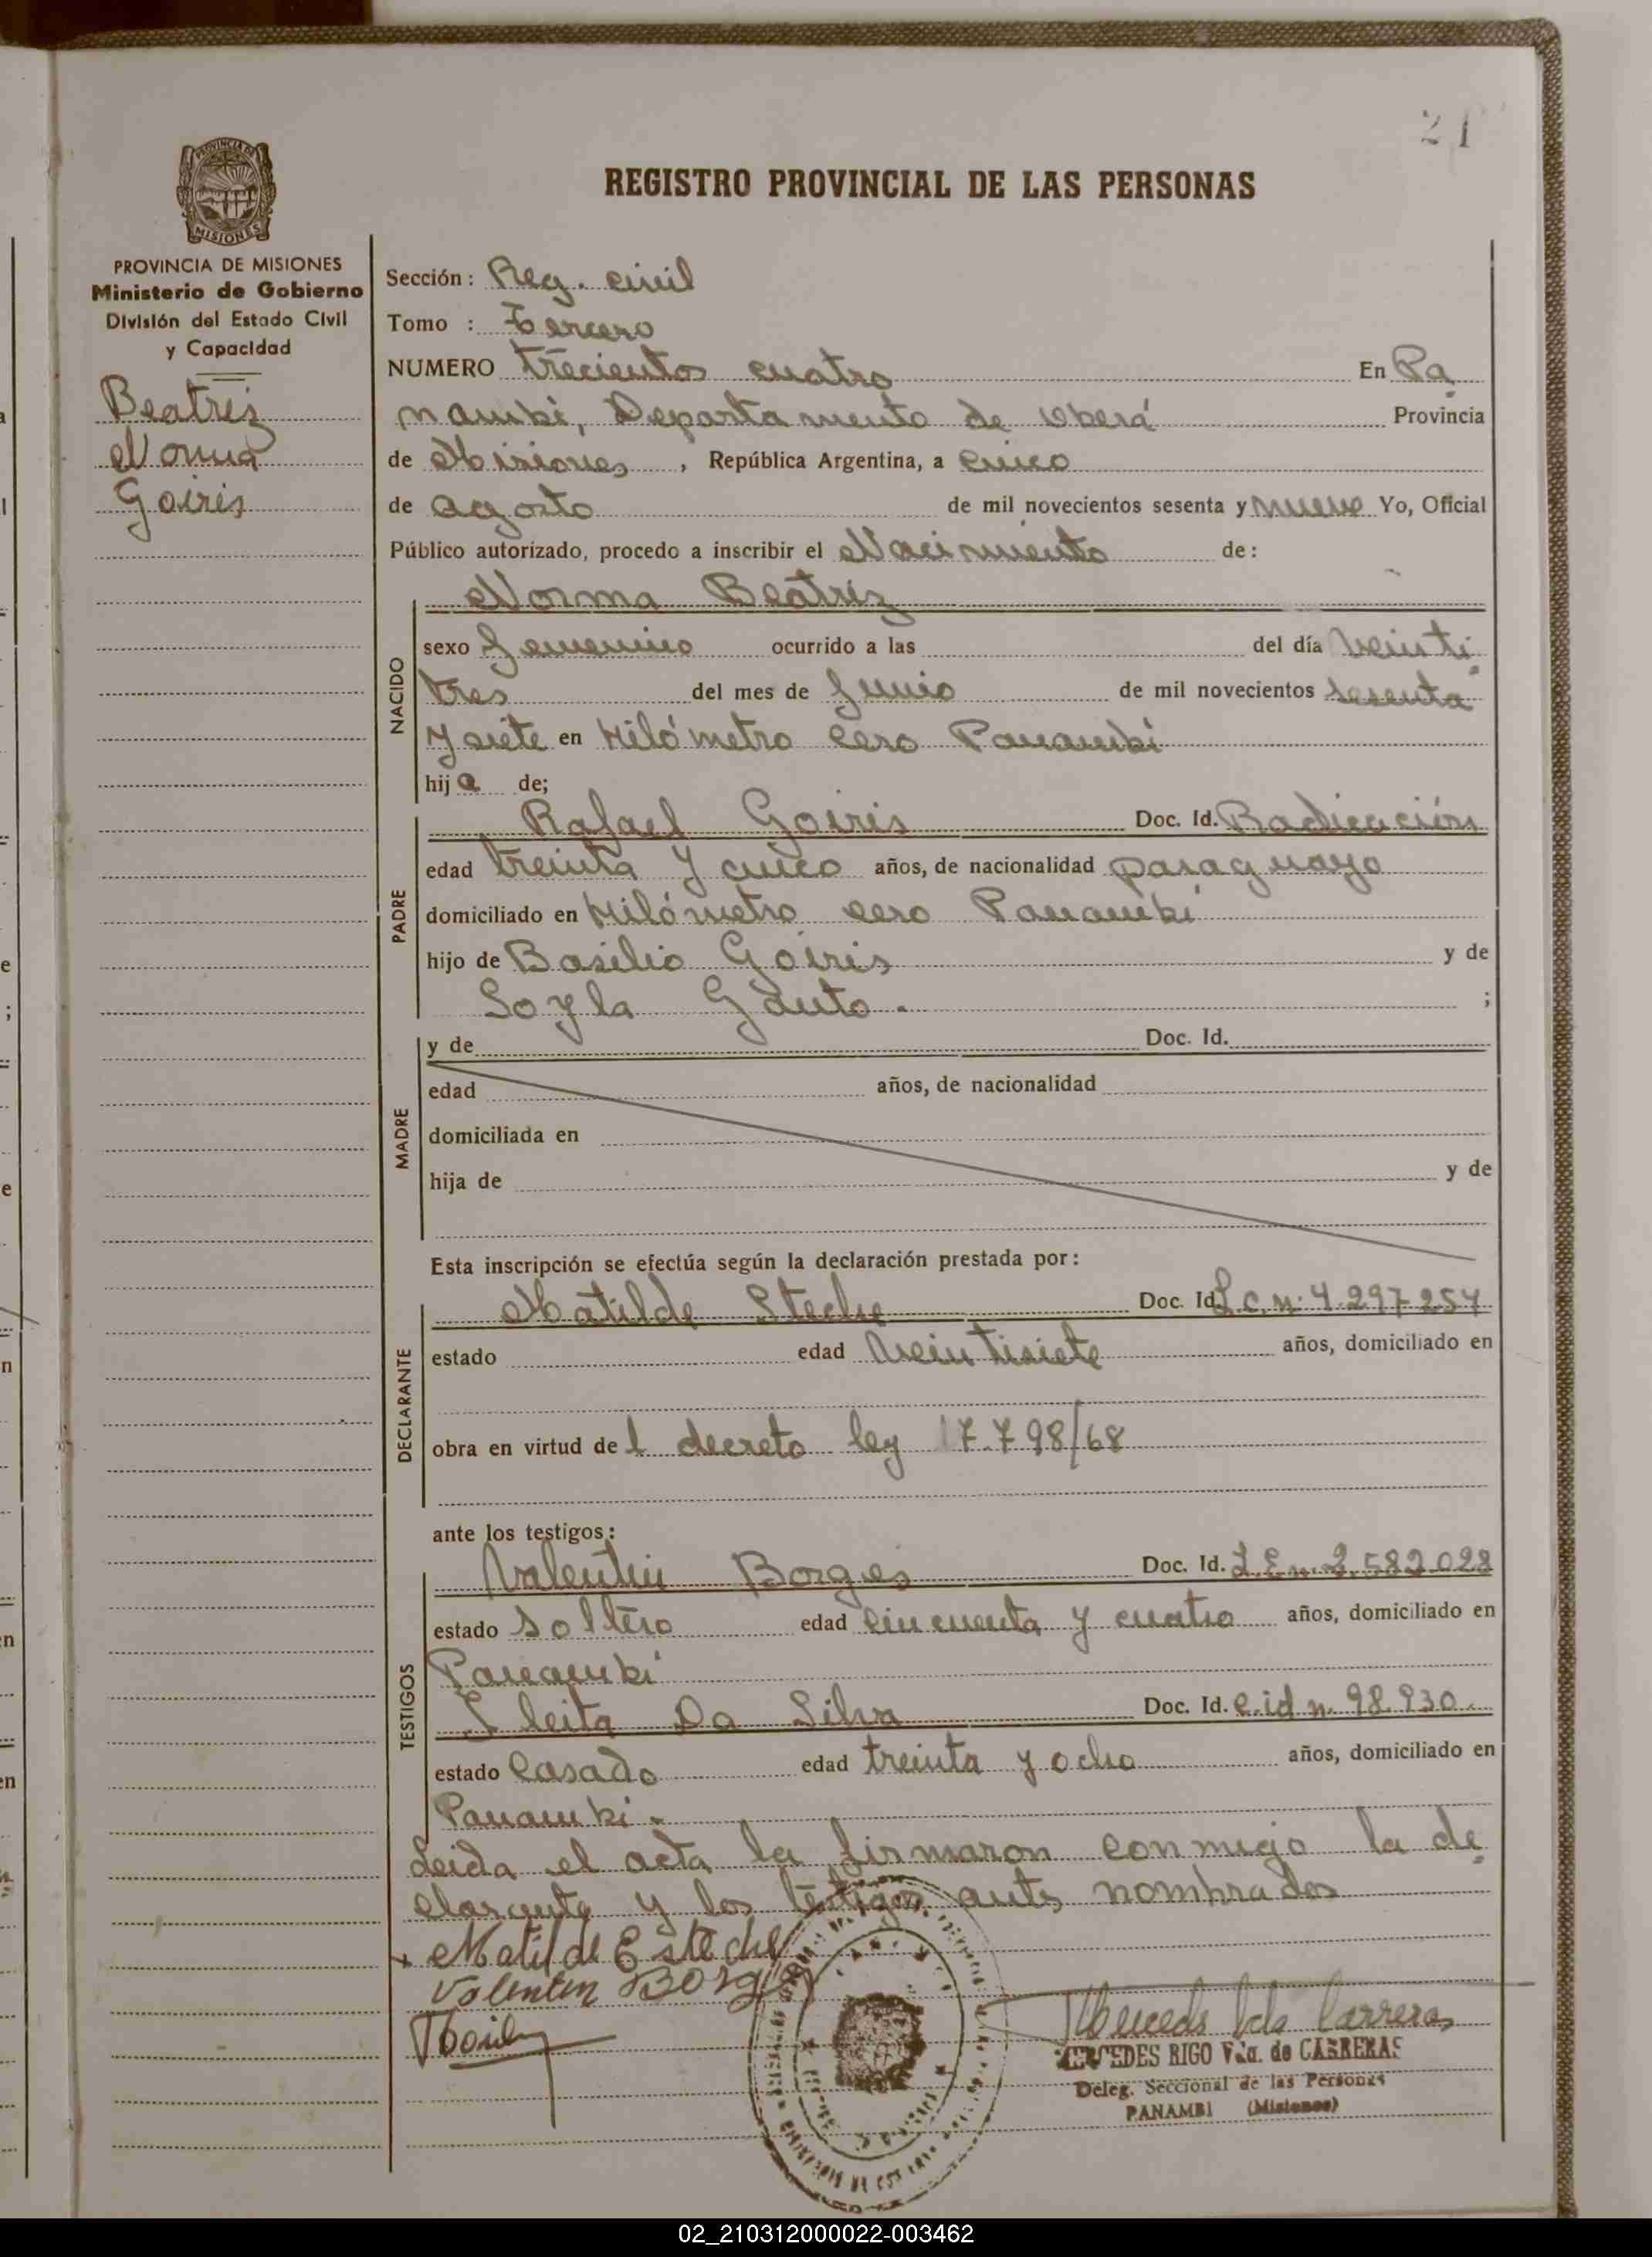 21
REGISTRO PROVINCIAL DE LAS PERSONAS
PROVINCIA DE MISIONES
PROVINCIA DE MISIONES
Ministerio de Gobierno
División del Estado Civil
y Capacidad
Beatriz
Norma
Goiris
Sección: Reg. civil
Tomo : Tercero
NUMERO trecientos cuatro En Pa
nambí, Departamento de Oberá Provincia
de Misiones, República Argentina, a cinco
de agosto de mil novecientos sesenta y nueve Yo, Oficial
Público autorizado, procedo a inscribir el Nacimiento de:
NACIDO
Norma Beatriz
sexo femenino ocurrido a las del día veinti
tres del mes de Junio de mil novecientos sesenta
y siete en Kilómetro cero Panambí
hija de;
PADRE
Rafael Goiris Doc. Id. Radicación
edad treinta y cinco años, de nacionalidad paraguayo
domiciliado en Kilómetro cero Panambí
hijo de Basilio Goiris y de
Soyla Gauto. ;
MADRE
y de Doc. Id.
edad años, de nacionalidad
domiciliada en
hija de y de
Esta inscripción se efectúa según la declaración prestada por:
DECLARANTE
Matilde Steche Doc. Id. L.C.n. 4.297254
estado edad veintisiete años, domiciliado en
obra en virtud del decreto ley 17.798/68
ante los testigos:
TESTIGOS
Valentín Borges Doc. Id. L.E.n. 2.582.028
estado soltero edad cincuenta y cuatro años, domiciliado en
Panambí
Da Silva Doc. Id. c.id n. 98.930.
estado casado edad treinta y ocho años, domiciliado en
Panambi.
Leida el acta la firmaron conmigo la de
clarante y los testigos antes nombrados
x Matilde Esteche
Valentin Borges
MERCEDES RIGO Vda. de CARRERAS
Deleg. Seccional de las Personas
PANAMBI (Misiones)
02_210312000022-003462